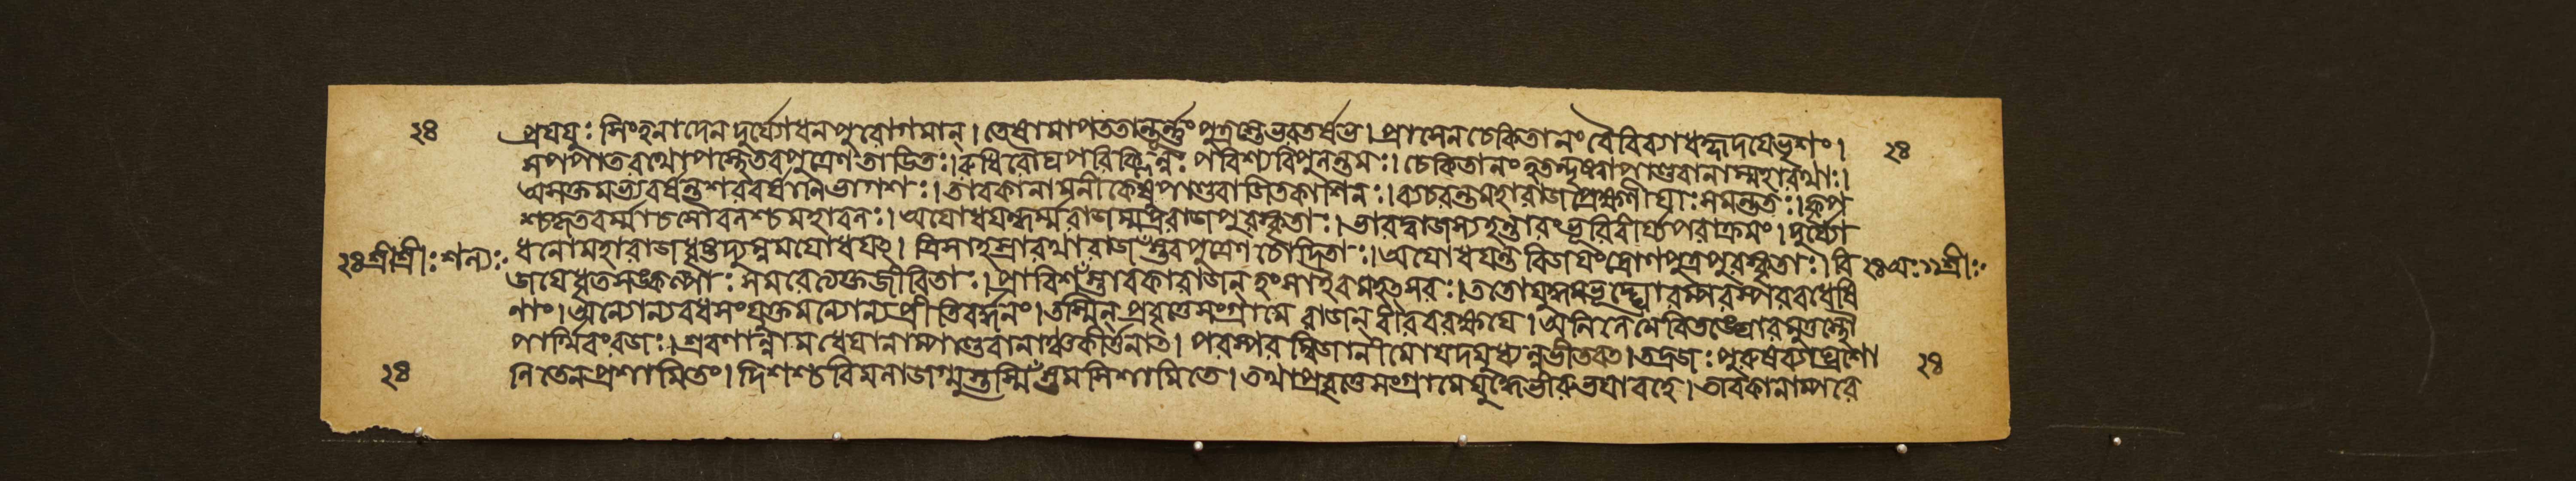 ২৪ প্রযযুঃ সিংহনাদেন দুর্য্যোধনপুরোগমান্। তেষামাপততান্তূর্ন্নং পুত্রস্তেভরতর্ষভ। প্রাসেনচেকিতানং বৈবিব্যাধহৃদযেভৃশং। ২৪
সপপাতরথোপস্থেতবপুত্রেণতাডিতঃ। রুধিরৌঘপরিক্লিন্নঃ পবিশ্যবিপুলন্তমঃ। চেকিতানং হতন্দৃষ্ট্বাপাণ্ডবানাম্মহারথাঃ।
অসক্তমভ্যবর্ষন্তশরবর্ষানিভাগশঃ। তাবকানামনীকেষুপাণ্ডবাজিতকাশিনঃ। ব্যচরন্তমহারাজপ্রেক্ষণীযাঃ সমন্ততঃ। কৃপ
শ্চকৃতবর্ম্মাচসৌবলশ্চমহাবলঃ। অযোধযন্ধর্ম্মরাজম্মদ্ররাজপুরস্কৃতাঃ। ভারদ্বাজস্যহন্তারং ভূরিবীর্য্যপরাক্রমং। দুর্য্যো
২৪ শ্রীশ্রীঃ শল্যঃ ধনোমহারাজধৃষ্টদ্যুম্নমযোধযৎ। ত্রিসাহস্রারথারাজঁস্তবপুত্রেণ চোদিতাঃ। অযোধযন্ত বিজযং দ্রোণপুত্রপুরস্কৃতাঃ। বি ২৪ অঃ ১১ শ্রীঃ
জযেধৃতসঙ্কল্পাঃ সমরেত্যক্তজীবিতাঃ। প্রাবিশঁস্তাবকারাজন্ হংসাইবমহৎসরঃ। ততোযুদ্ধমভূদ্ঘোরম্পরস্পরবধৈষি
ণাং। অন্যোন্যবধসংযুক্তমন্যোন্যপ্রীতিবর্দ্ধনং। তস্মিন্ প্রবৃত্তেসংগ্রামে রাজন্ বীরবরক্ষযে। অনিলেনেবিতঙ্ঘোরমুত্তস্থৌ
পার্থিবংরজঃ। শ্রবণান্নামধেযানাম্পাণ্ডবানাঞ্চকীর্ত্তনাত্। পরস্পরম্বিজানীমোযদযুধ্যন্নভীতবত্। তদ্রজঃ পুরুষব্যাঘ্রশো
২৪ নিতেনপ্রশামিতং। দিশশ্চবিমলাজগ্মুস্তস্মিঁস্তমসিশামিতে। তথাপ্রবৃত্তেসংগ্রামেঘুদ্ধেভীরুভযাবহে। তাবকানাম্পরে ২৪